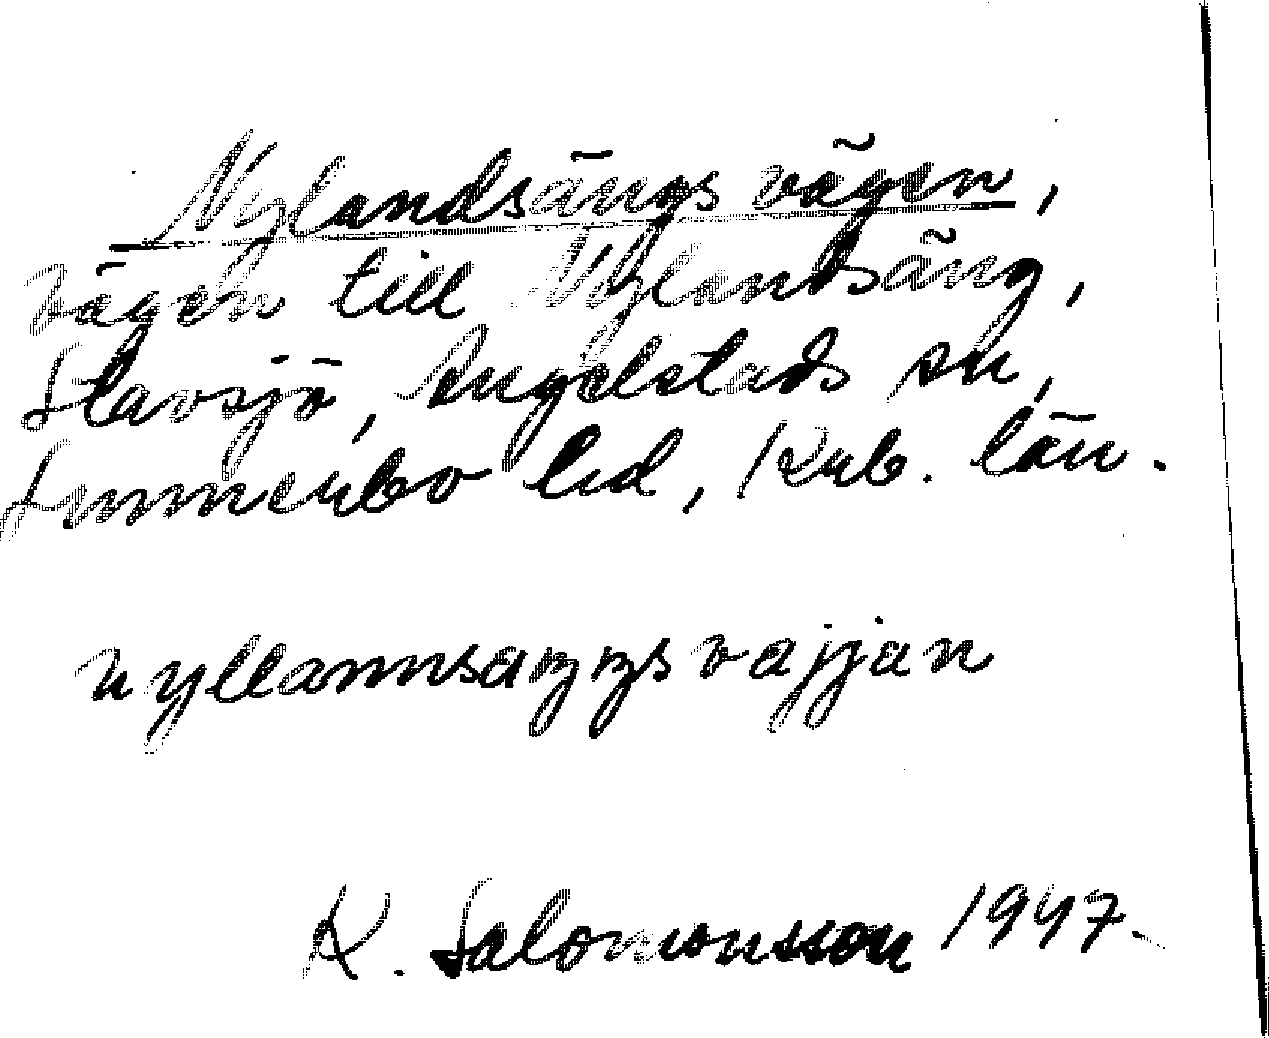 Nylandsängsvägen,
vägen till Nylandsäng,
Slavsjö, Angelstads sn,
Sunnerbo hd, Krb. län.
nyllannsaŋŋsvajjan
K. Salomonsson 1947.